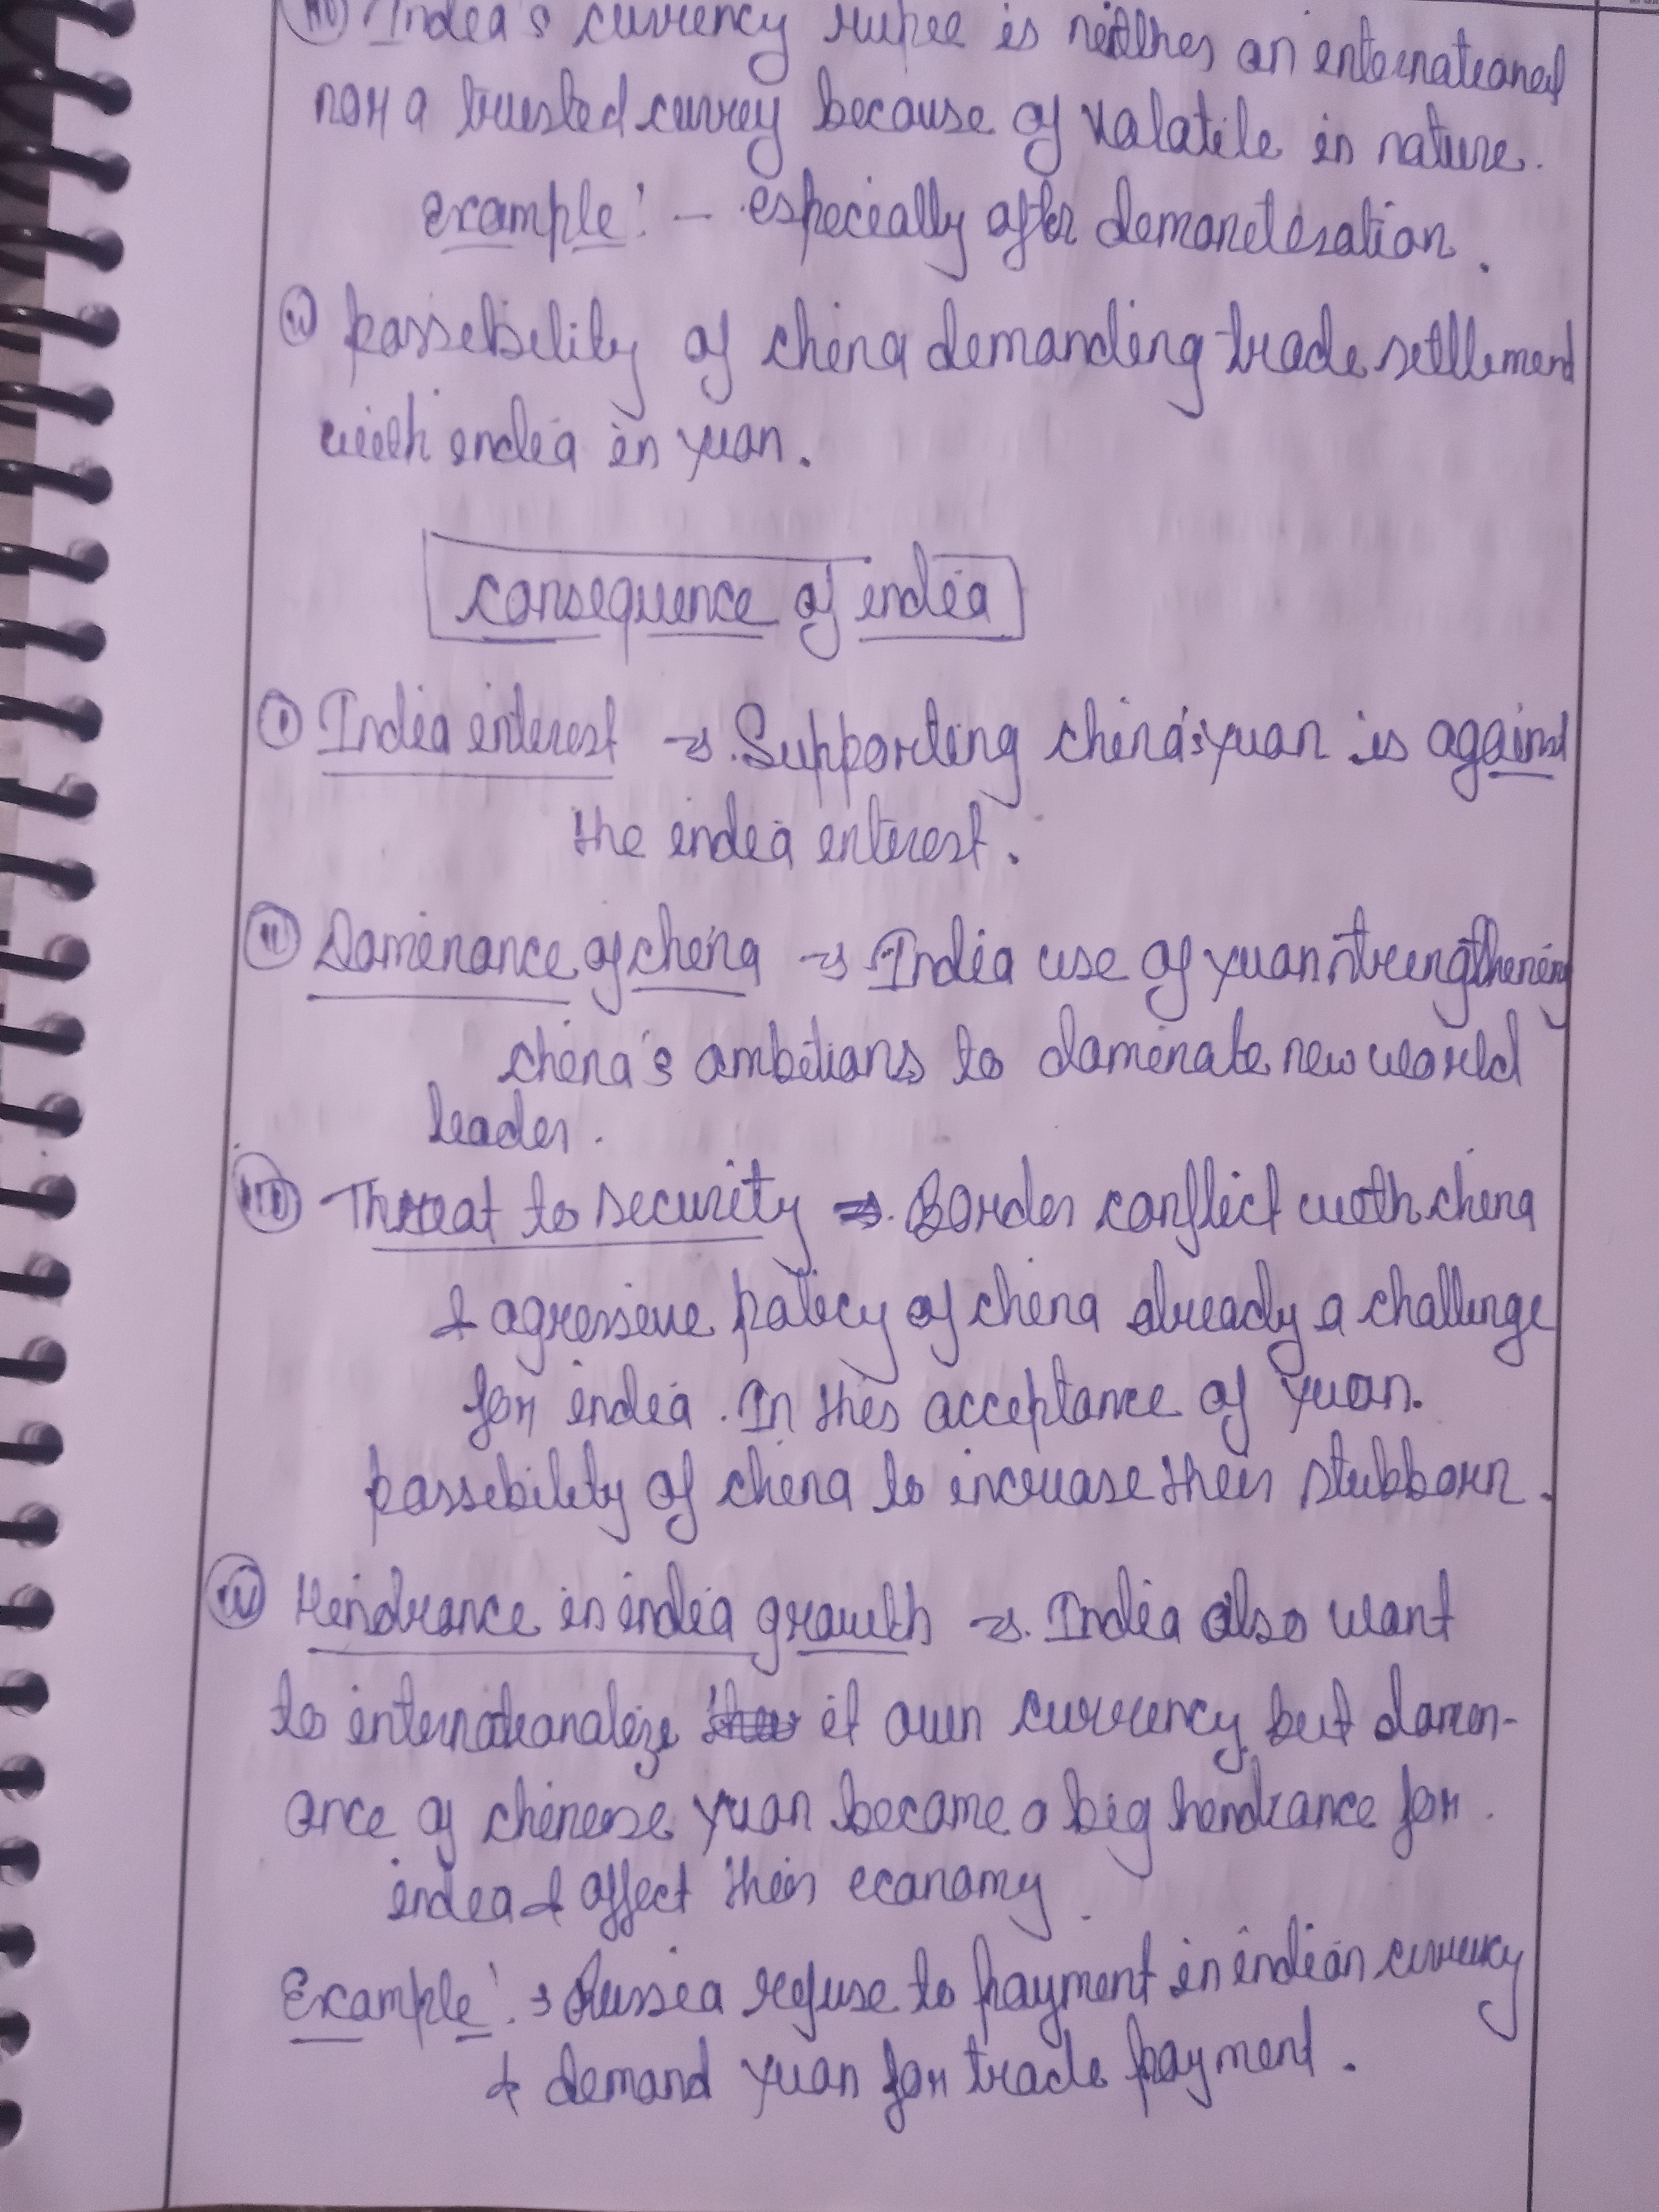 (iii) India's currency rupee is neither an international
nor a trusted currey because of valatile in nature.
example:- especially after demonetisation.
(iv) possebility of china demanding trade settlement
with india in yuan.
consequence of india
(i) India interest → Supporting china's yuan is against
the india interest.
(ii) Dominance of china → India use of yuan strengthening
china's ambitions to dominate new world
leader.
(iii) Threat to security → Border conflict with china
& agressive policy of china already a challenge
for india. In this acceptance of yuan.
possebility of china to increase their stubborn.
(iv) Hindrance in india growth → India also want
to internationalize it own currency but domin-
ance of chinese yuan became a big hendrance for
india & affect their economy
Example:→ Russia refuse to payment in indian currency
& demand yuan for trade payment.